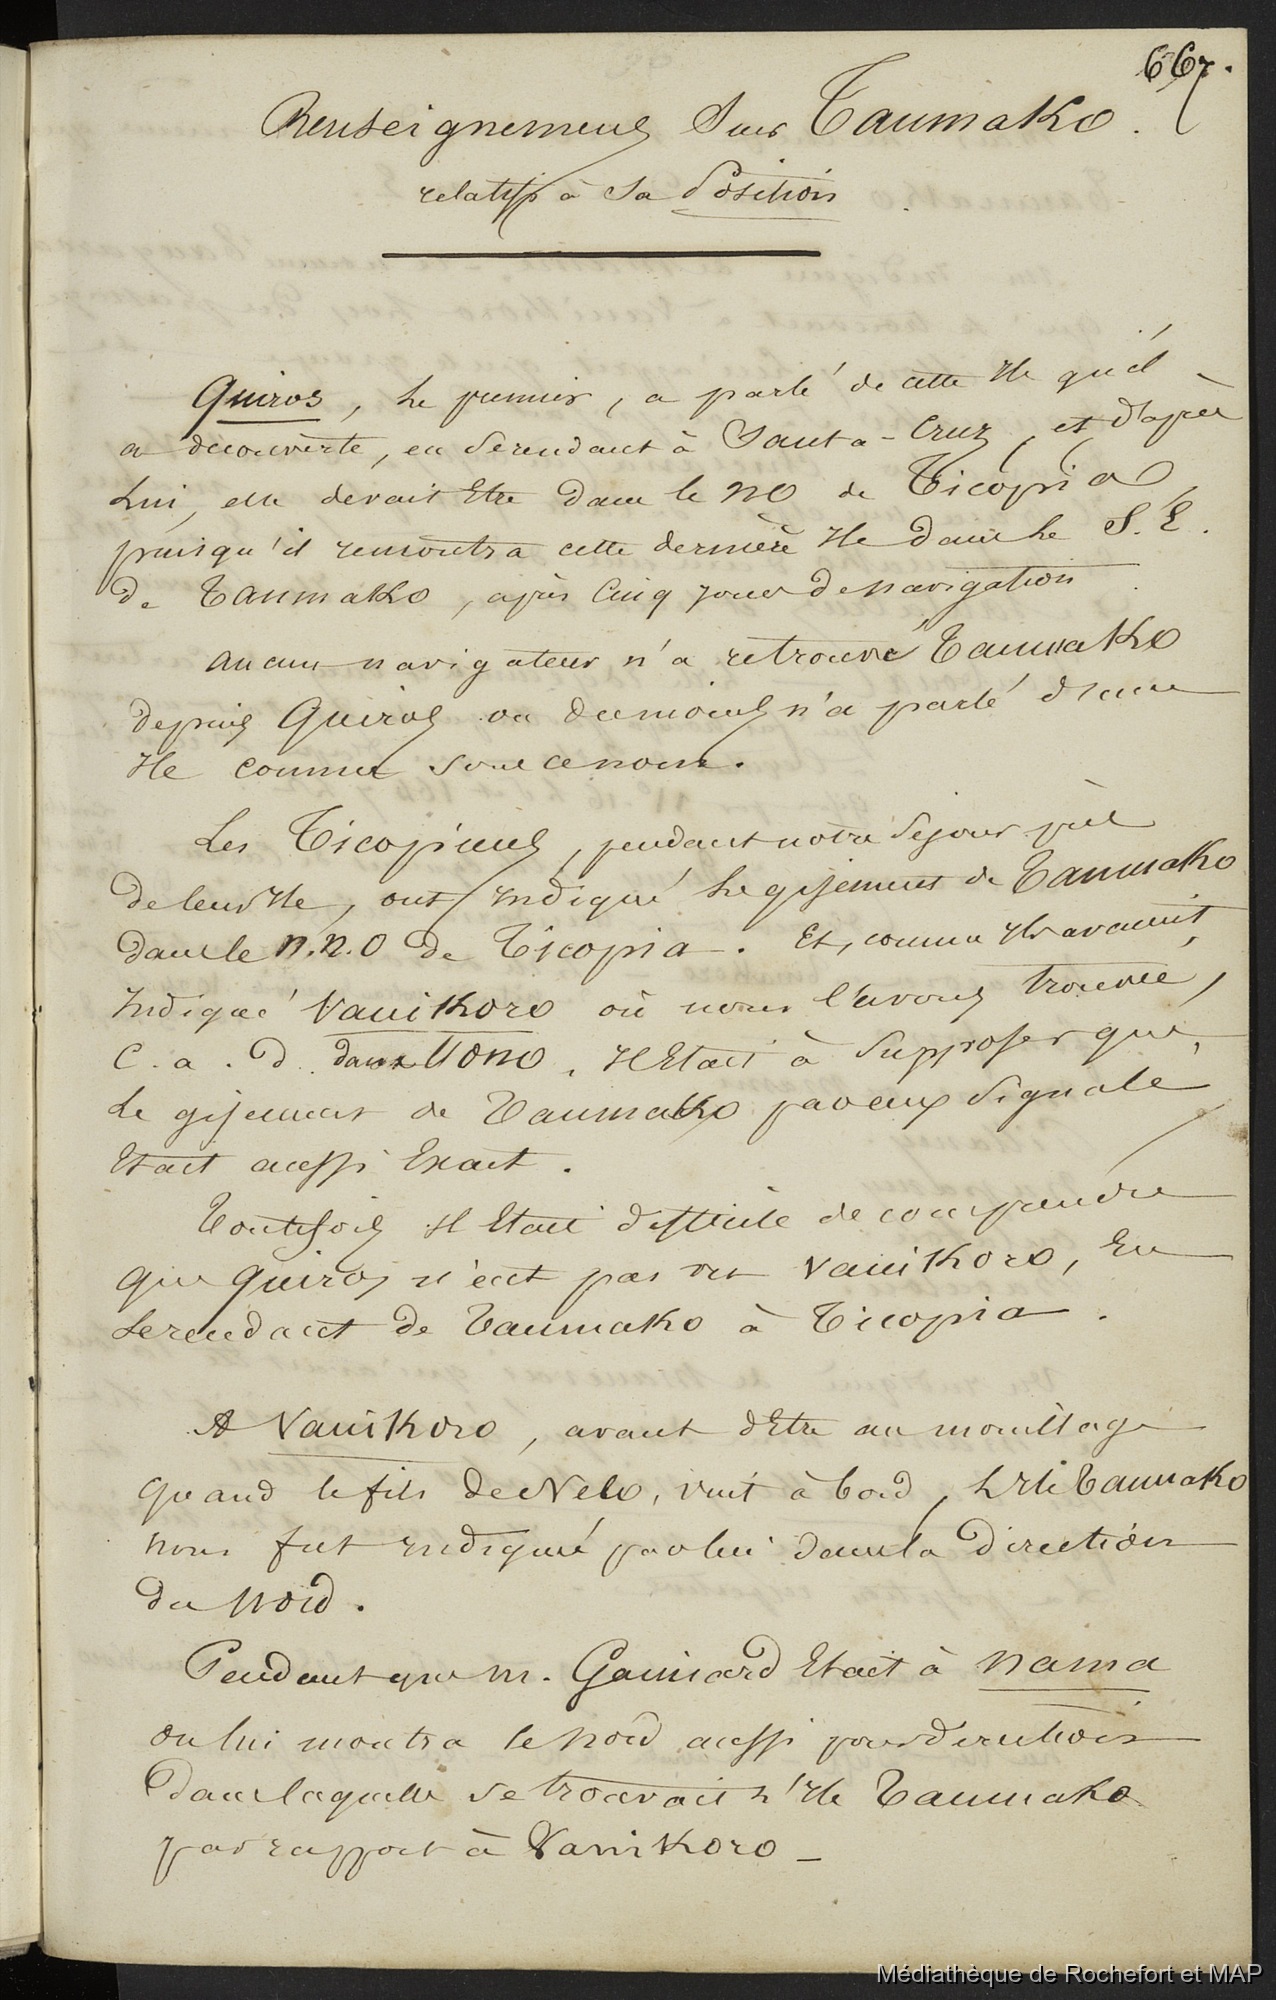 667.
Renseignemens Sur Taumako.
relatifs à Sa Position
Quiros, le premier, a parlé de cette Ile qu'il
a découverte, en Serendant à Santa-Cruz, et d'après
Lui, elle devait Etre dans le NO de Ticopia,
puisqu'il remontra cette dernière Ile dans le S.E.
de Taumako, après Cinq jours de navigation
aucun navigateur n'a retrouvé Taumako
depuis Quiros ou dumoins n'a parlé d'une
Ile connue sous ce nom.
Les Ticopiens, pendant notre Séjour près
de leur Ile, ont indiqué le gisement de Taumako
dans le N.N.O de Ticopia. Et, comme ils avaient
indiqué Vanikoro où nous l'avons trouvée,
C.a.D. dans l'ONO, il Etait à Supposer que
le gisement de Taumako par eux Signalé
Etait aussi Exact.
Toutefois il Etait difficile de comprendre
que Quiros n'eut pas vu Vanikoro, En
Serendant de Taumako à Ticopia.
A Vanikoro, avant d'Etre au mouillage
quand le fils de Nelo, vint à bord, L'Ile Taumako
nous fut indiqué par lui dans la Direction
du Nord.
Pendant que m. Gaimard Etait à Nama
on lui montra le Nord aussi pour direction
Dans laquelle se trouvait l'Ile Taumako
par rapport à Vanikoro _
Médiathèque de Rochefort et MAP